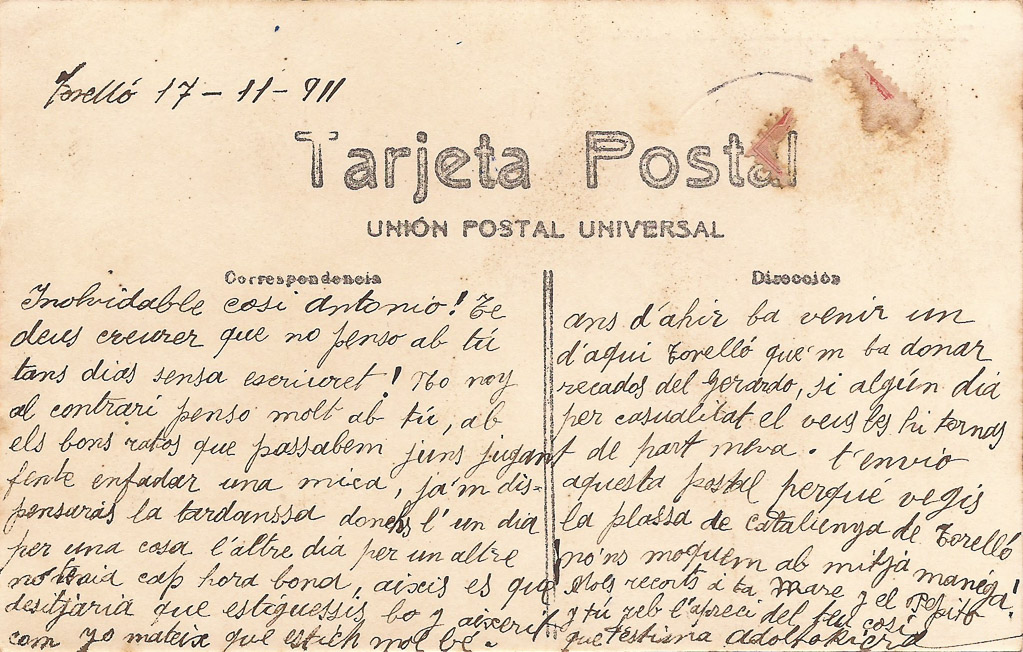 Torelló 17-11-911
Tarjeta Postal
UNIÓN POSTAL UNIVERSAL
Correspondencia
Inolvidable cosi Antonio! Te
deus creurer que no penso ab tú
tans dias sensa escriuret! No noy
al contrari penso molt ab tú, ab
els bons ratos que passabem juns jugant
fente enfadar una mica, ja'm dis-
pensarás la tardanssa donchs l'un dia
per una cosa l'altre dia per un altre
no tenia cap hora bona, aixis es que
desitjaria que estiguessis bo y aixerit
com yo mateix que estich mol be.
Dirección
ans d'ahir ba venir un
d'aqui Torelló que'm ba donar
recados del Gerardo, si algún dia
per casualitat el veus les hi tornas
de part meva. t'envio
aquesta postal perqué vegis
la plassa de Catalunya de Torelló
no'ns moquem ab mitja manéga!
Mols recorts á ta Mare y el Pepito
y tú reb l'apreci del teu cosí
que t'estima